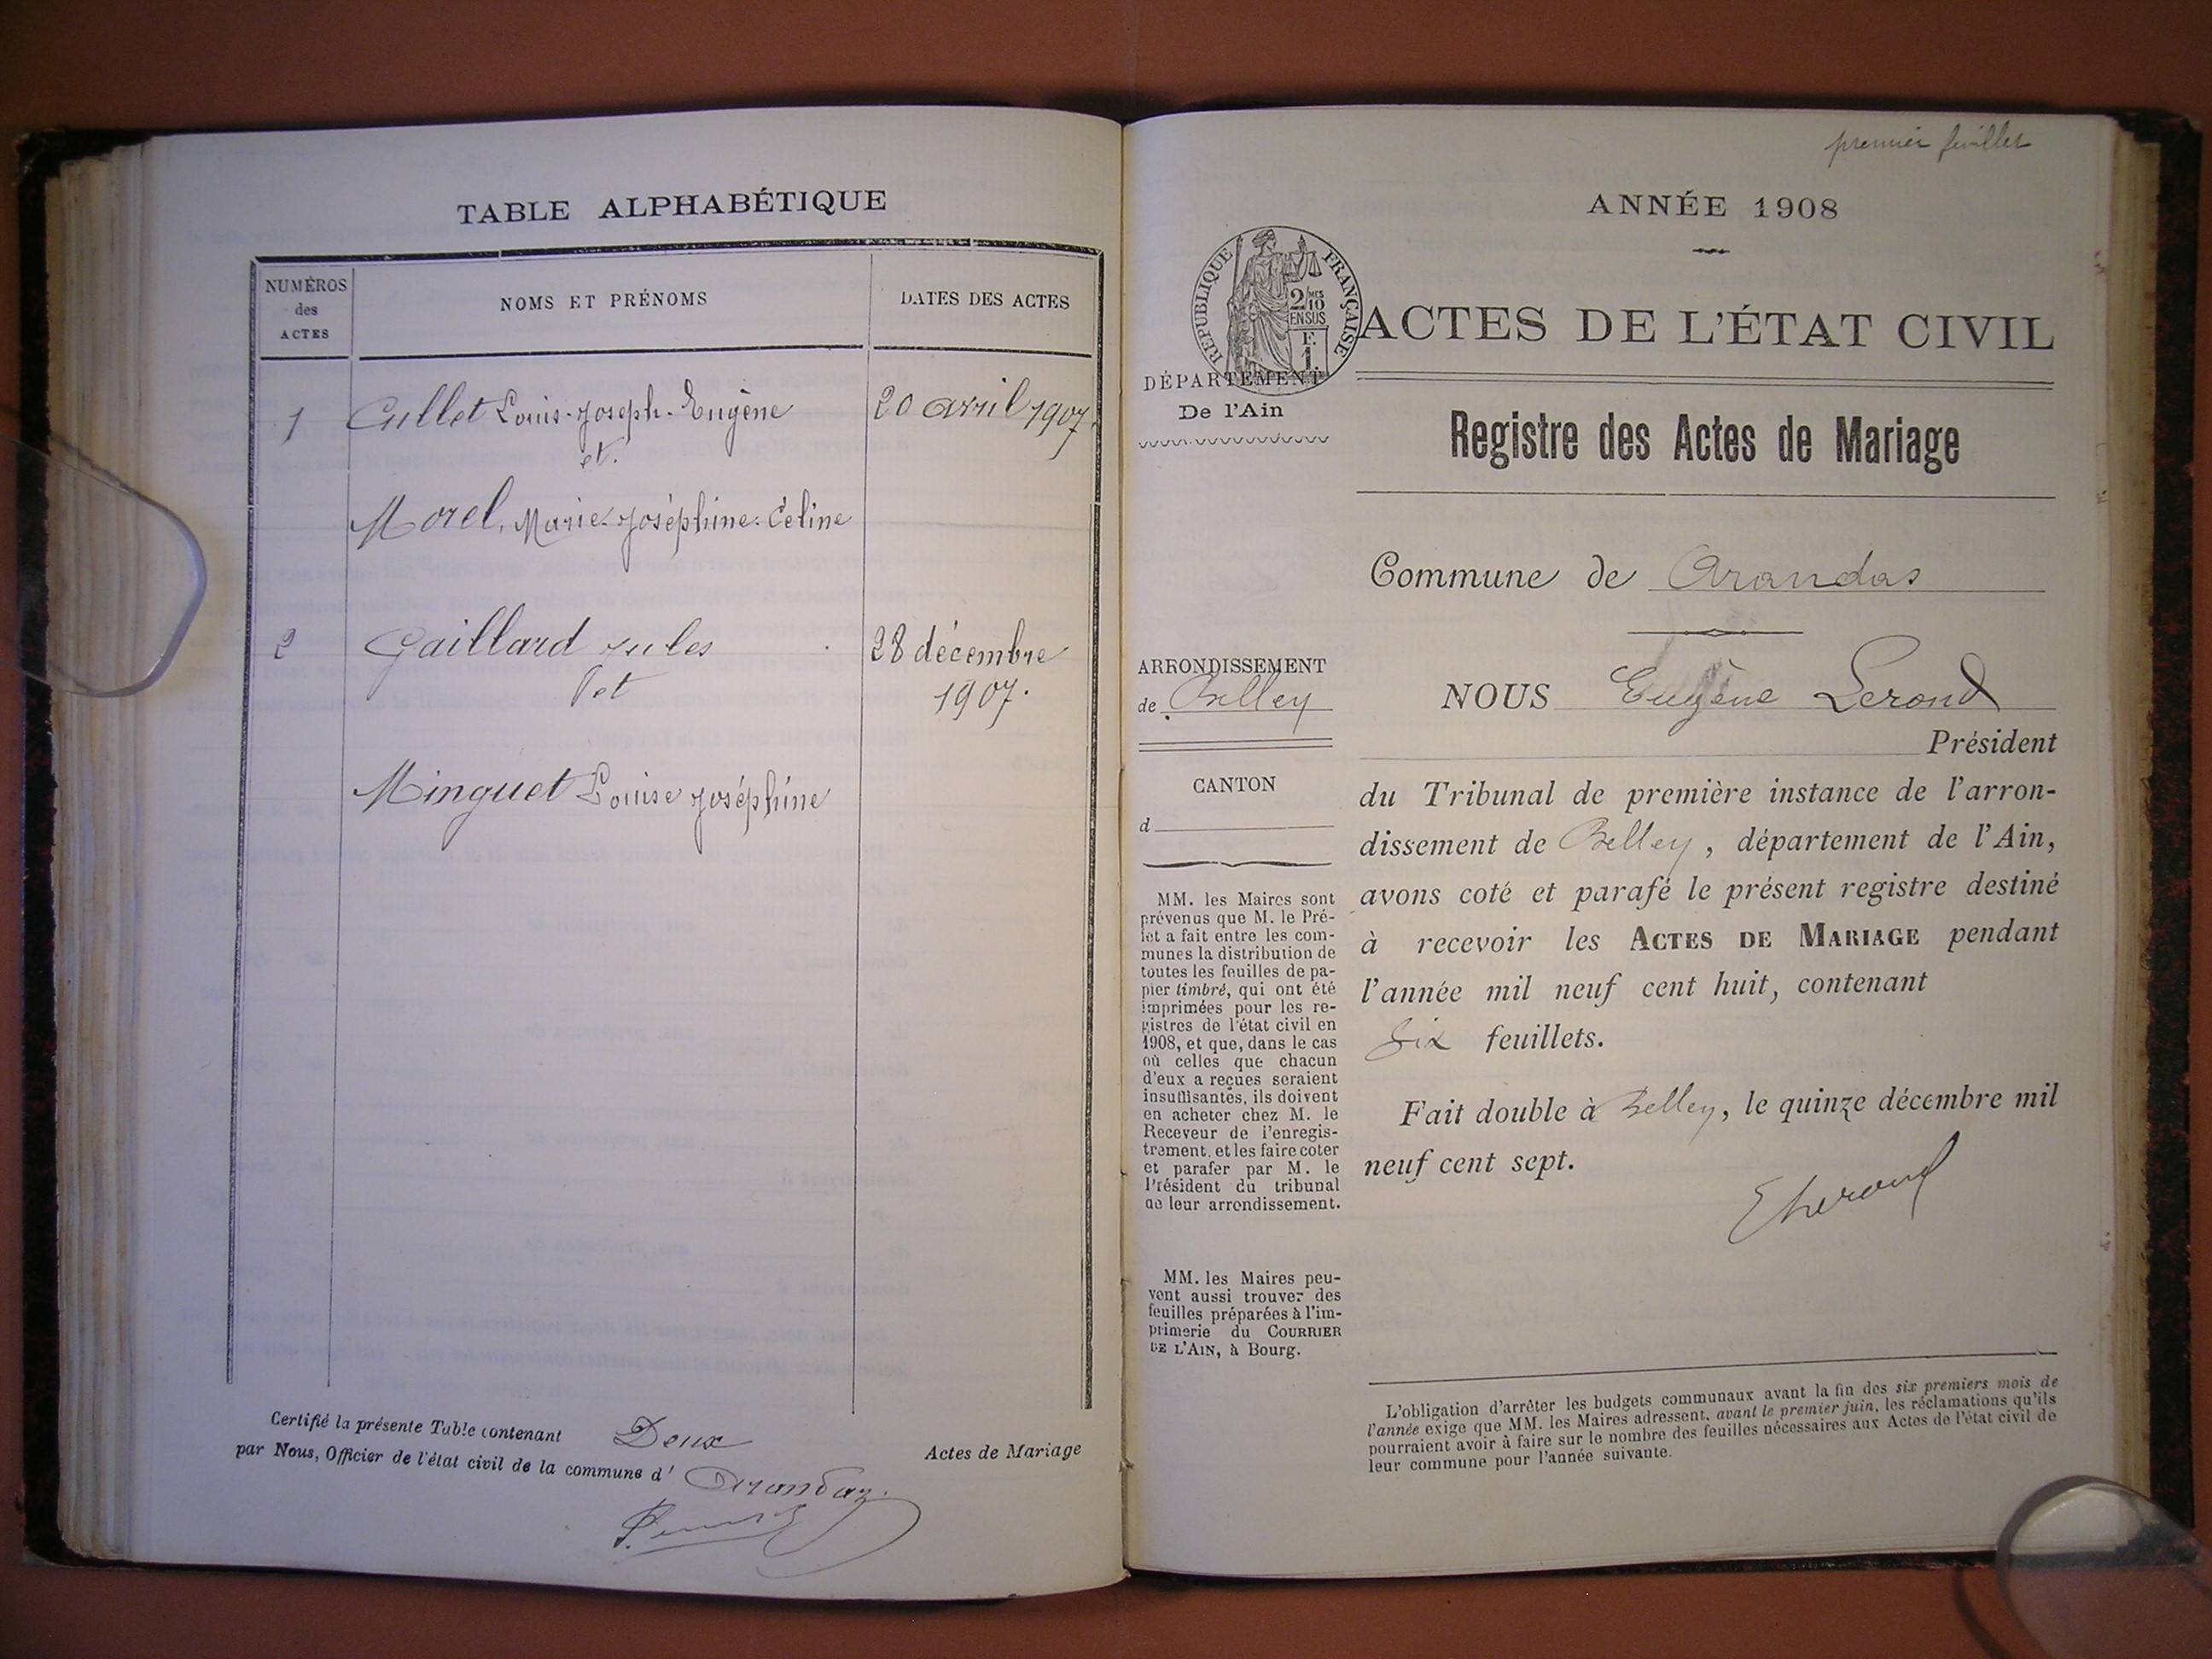 TABLE ALPHABÉTIQUE
NUMÉROS
des
ACTES
NOMS ET PRÉNOMS
DATES DES ACTES
1 Cullet Louis-Joseph-Eugène 20 avril 1907.
et.
Morel, Marie-Joséphine-Céline
2 Gaillard Jules 28 décembre
et 1907.
Minguet Louise Joséphine
Certifié la présente Table contenant Deux Actes de Mariage
par Nous, Officier de l'état civil de la commune d' Arandaz.
premier feuillet
ANNÉE 1908
RÉPUBLIQUE FRANÇAISE
2/10
MES
EN SUS
F.
1.
ACTES DE L'ÉTAT CIVIL
DÉPARTEMENT
De l'Ain
Registre des Actes de Mariage
Commune de Arandas
ARRONDISSEMENT
de Belley
CANTON
d
MM. les Maires sont
prévenus que M. le Pré-
fet a fait entre les com-
munes la distribution de
toutes les feuilles de pa-
pier timbré, qui ont été
imprimées pour les re-
gistres de l'état civil en
1908, et que, dans le cas
où celles que chacun
d'eux a reçues seraient
insuffisantes, ils doivent
en acheter chez M. le
Receveur de l'enregis-
trement, et les faire coter
et parafer par M. le
Président du tribunal
de leur arrondissement.
MM. les Maires peu-
vent aussi trouver des
feuilles préparées à l'im-
primerie du COURRIER
DE L'AIN, à Bourg.
NOUS Eugène Lerond
Président
du Tribunal de première instance de l'arron-
dissement de Belley, département de l'Ain,
avons coté et parafé le présent registre destiné
à recevoir les ACTES DE MARIAGE pendant
l'année mil neuf cent huit, contenant
six feuillets.
Fait double à Belley, le quinze décembre mil
neuf cent sept.
ELerond
L'obligation d'arrêter les budgets communaux avant la fin des six premiers mois de
l'année exige que MM. les Maires adressent, avant le premier juin, les réclamations qu'ils
pourraient avoir à faire sur le nombre des feuilles nécessaires aux Actes de l'état civil de
leur commune pour l'année suivante.